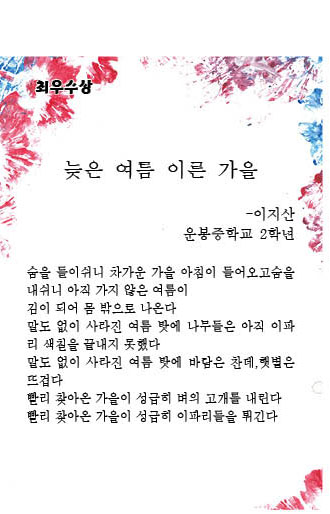 최우수상
늦은 여름 이른 가을
-이지산
운봉중학교 2학년
숨을 들이쉬니 차가운 가을 아침이 들어오고숨을
내쉬니 아직 가지 않은 여름이
김이 되어 몸 밖으로 나온다
말도 없이 사라진 여름 탓에 나무들은 아직 이파
리 색칠을 끝내지 못했다
말도 없이 사라진 여름 탓에 바람은 찬데,햇볕은
뜨겁다
빨리 찾아온 가을이 성급히 벼의 고개를 내린다
빨리 찾아온 가을이 성급히 이파리들을 튀긴다